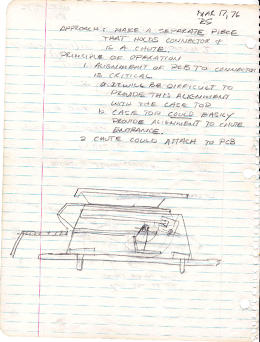 MAR 17, 76
RS
APPROACH: MAKE A SEPARATE PIECE
THAT HOLDS CONNECTOR &
IS A CHUTE.
PRINCIPLE OF OPERATION
1. ALIGNMENT OF PCB TO CONNECTOR
IS CRITICAL
a. IT WILL BE DIFFICULT TO
PROVIDE THIS ALIGNMENT
WITH THE CASE TOP
b. CASE TOP COULD EASILY
PROVIDE ALIGNMENT TO CHUTE
ENTRANCE.
2. CHUTE COULD ATTACH TO PCB